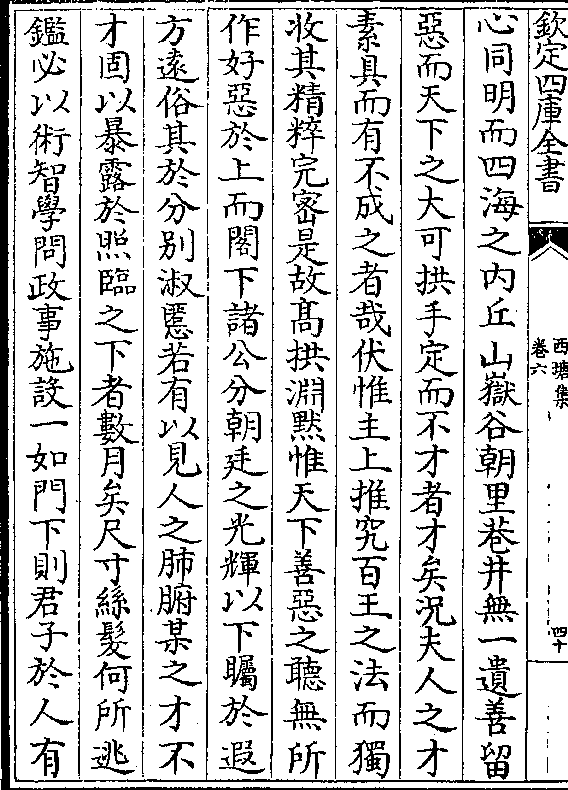 欽定四庫全書
西塘集
卷六
四十
心同明而四海之内丘山嶽谷朝里巷井無一遺善留
惡而天下之大可拱手定而不才者才矣況夫人之才
素具而有不成之者哉伏惟主上推究百王之法而獨
收其精粹完密是故髙拱淵黙惟天下善惡之聽無所
作好惡於上而閣下諸公分朝廷之光輝以下矚於遐
方遠俗其於分别淑慝若有以見人之肺腑某之才不
才固以暴露於照臨之下者數月矣尺寸絲髮何所逃
鑑必以術智學問政事施設一如門下則君子於人有